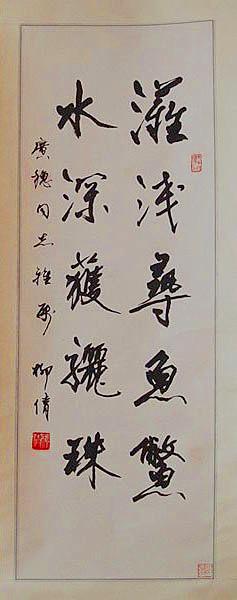 灘浅尋魚鱉
水深獲驪珠
廣穗同志雅屬 柳倩